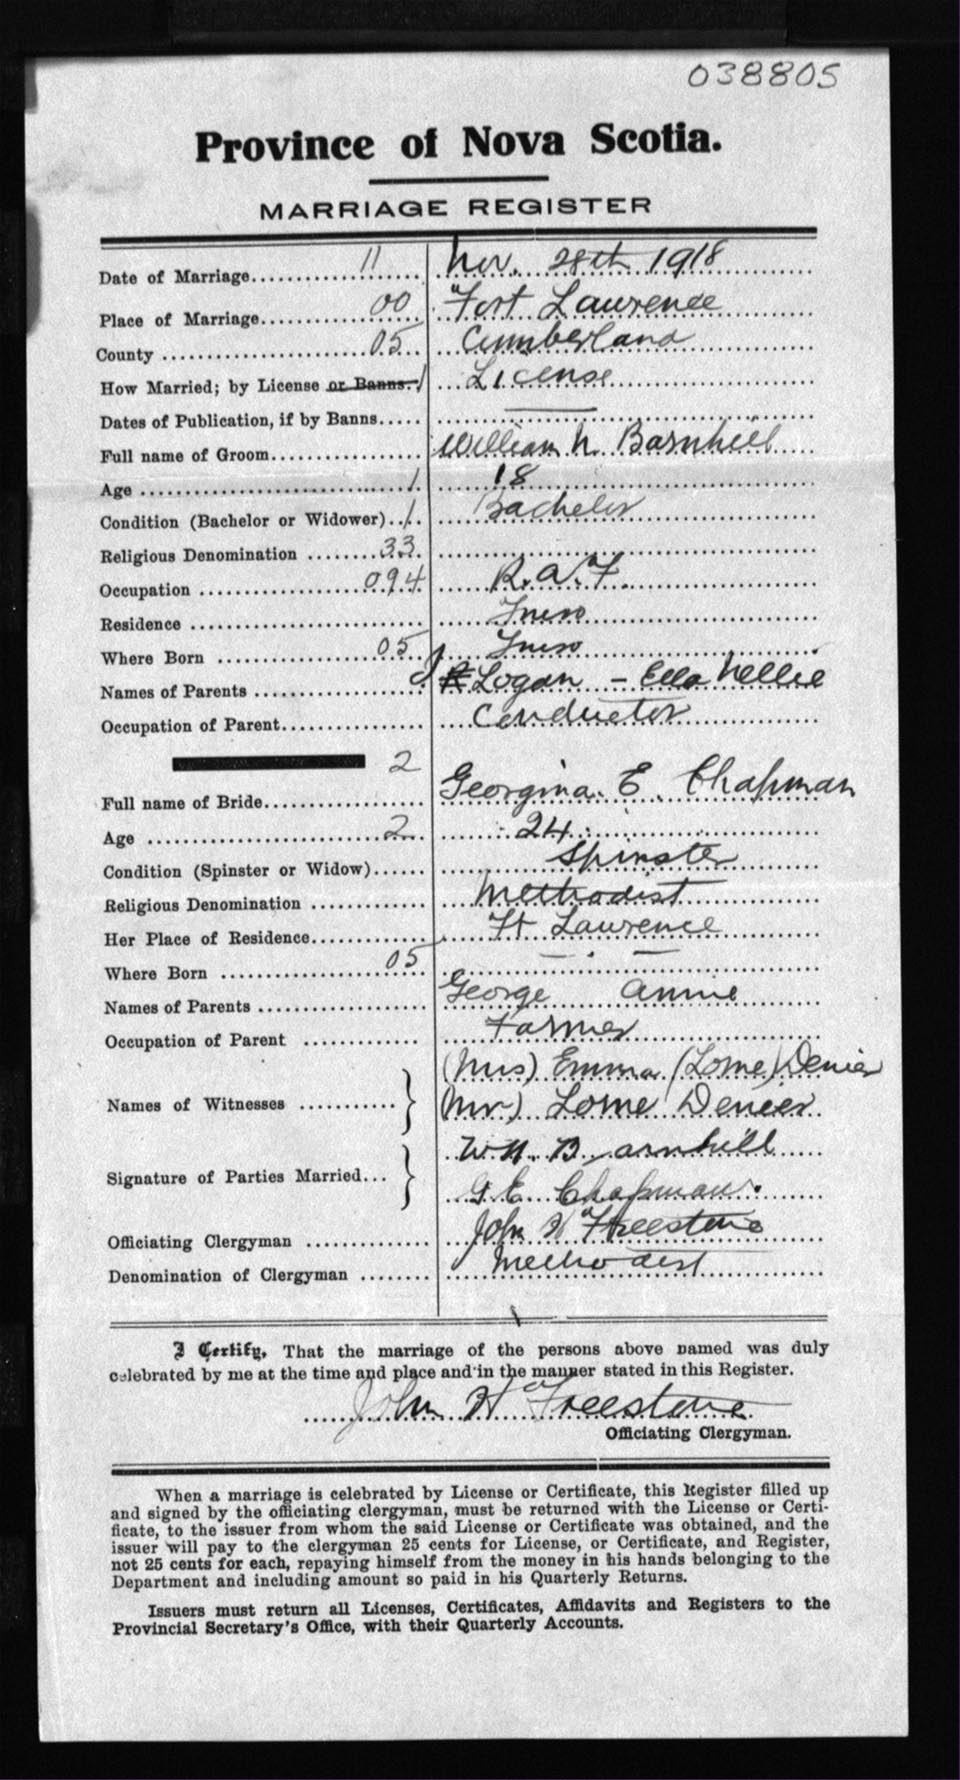 038805
Province of Nova Scotia.
MARRIAGE REGISTER
Date of Marriage 11 Nov. 28th 1918
Place of Marriage 00 Fort Lawrence
County 05 Cumberland
How Married; by License or Banns. 1 License
Dates of Publication, if by Banns —
Full name of Groom William N. Barnhill
Age 1 18
Condition (Bachelor or Widower) 1 Bachelor
Religious Denomination 33
Occupation 094 R.A.F.
Residence Truro
Where Born 05 Truro
Names of Parents Logan – Ella Nellie
Occupation of Parent Conductor
2
Full name of Bride Georgina E. Chapman
Age 2 24
Condition (Spinster or Widow) Spinster
Religious Denomination Methodist
Her Place of Residence Ft Lawrence
Where Born 05 — . —
Names of Parents George Annie
Occupation of Parent Farmer
(Mrs) Emma (Lorne)
Names of Witnesses (Mr) Lorne
W.N. Barnhill
Signature of Parties Married G E Chapman.
Officiating Clergyman John H Freestone
Denomination of Clergyman Methodist
I Certify, That the marriage of the persons above named was duly
celebrated by me at the time and place and in the manner stated in this Register.
John H Freestone
Officiating Clergyman.
When a marriage is celebrated by License or Certificate, this Register filled up
and signed by the officiating clergyman, must be returned with the License or Certi-
ficate, to the issuer from whom the said License or Certificate was obtained, and the
issuer will pay to the clergyman 25 cents for License, or Certificate, and Register,
not 25 cents for each, repaying himself from the money in his hands belonging to the
Department and including amount so paid in his Quarterly Returns.
Issuers must return all Licenses, Certificates, Affidavits and Registers to the
Provincial Secretary's Office, with their Quarterly Accounts.